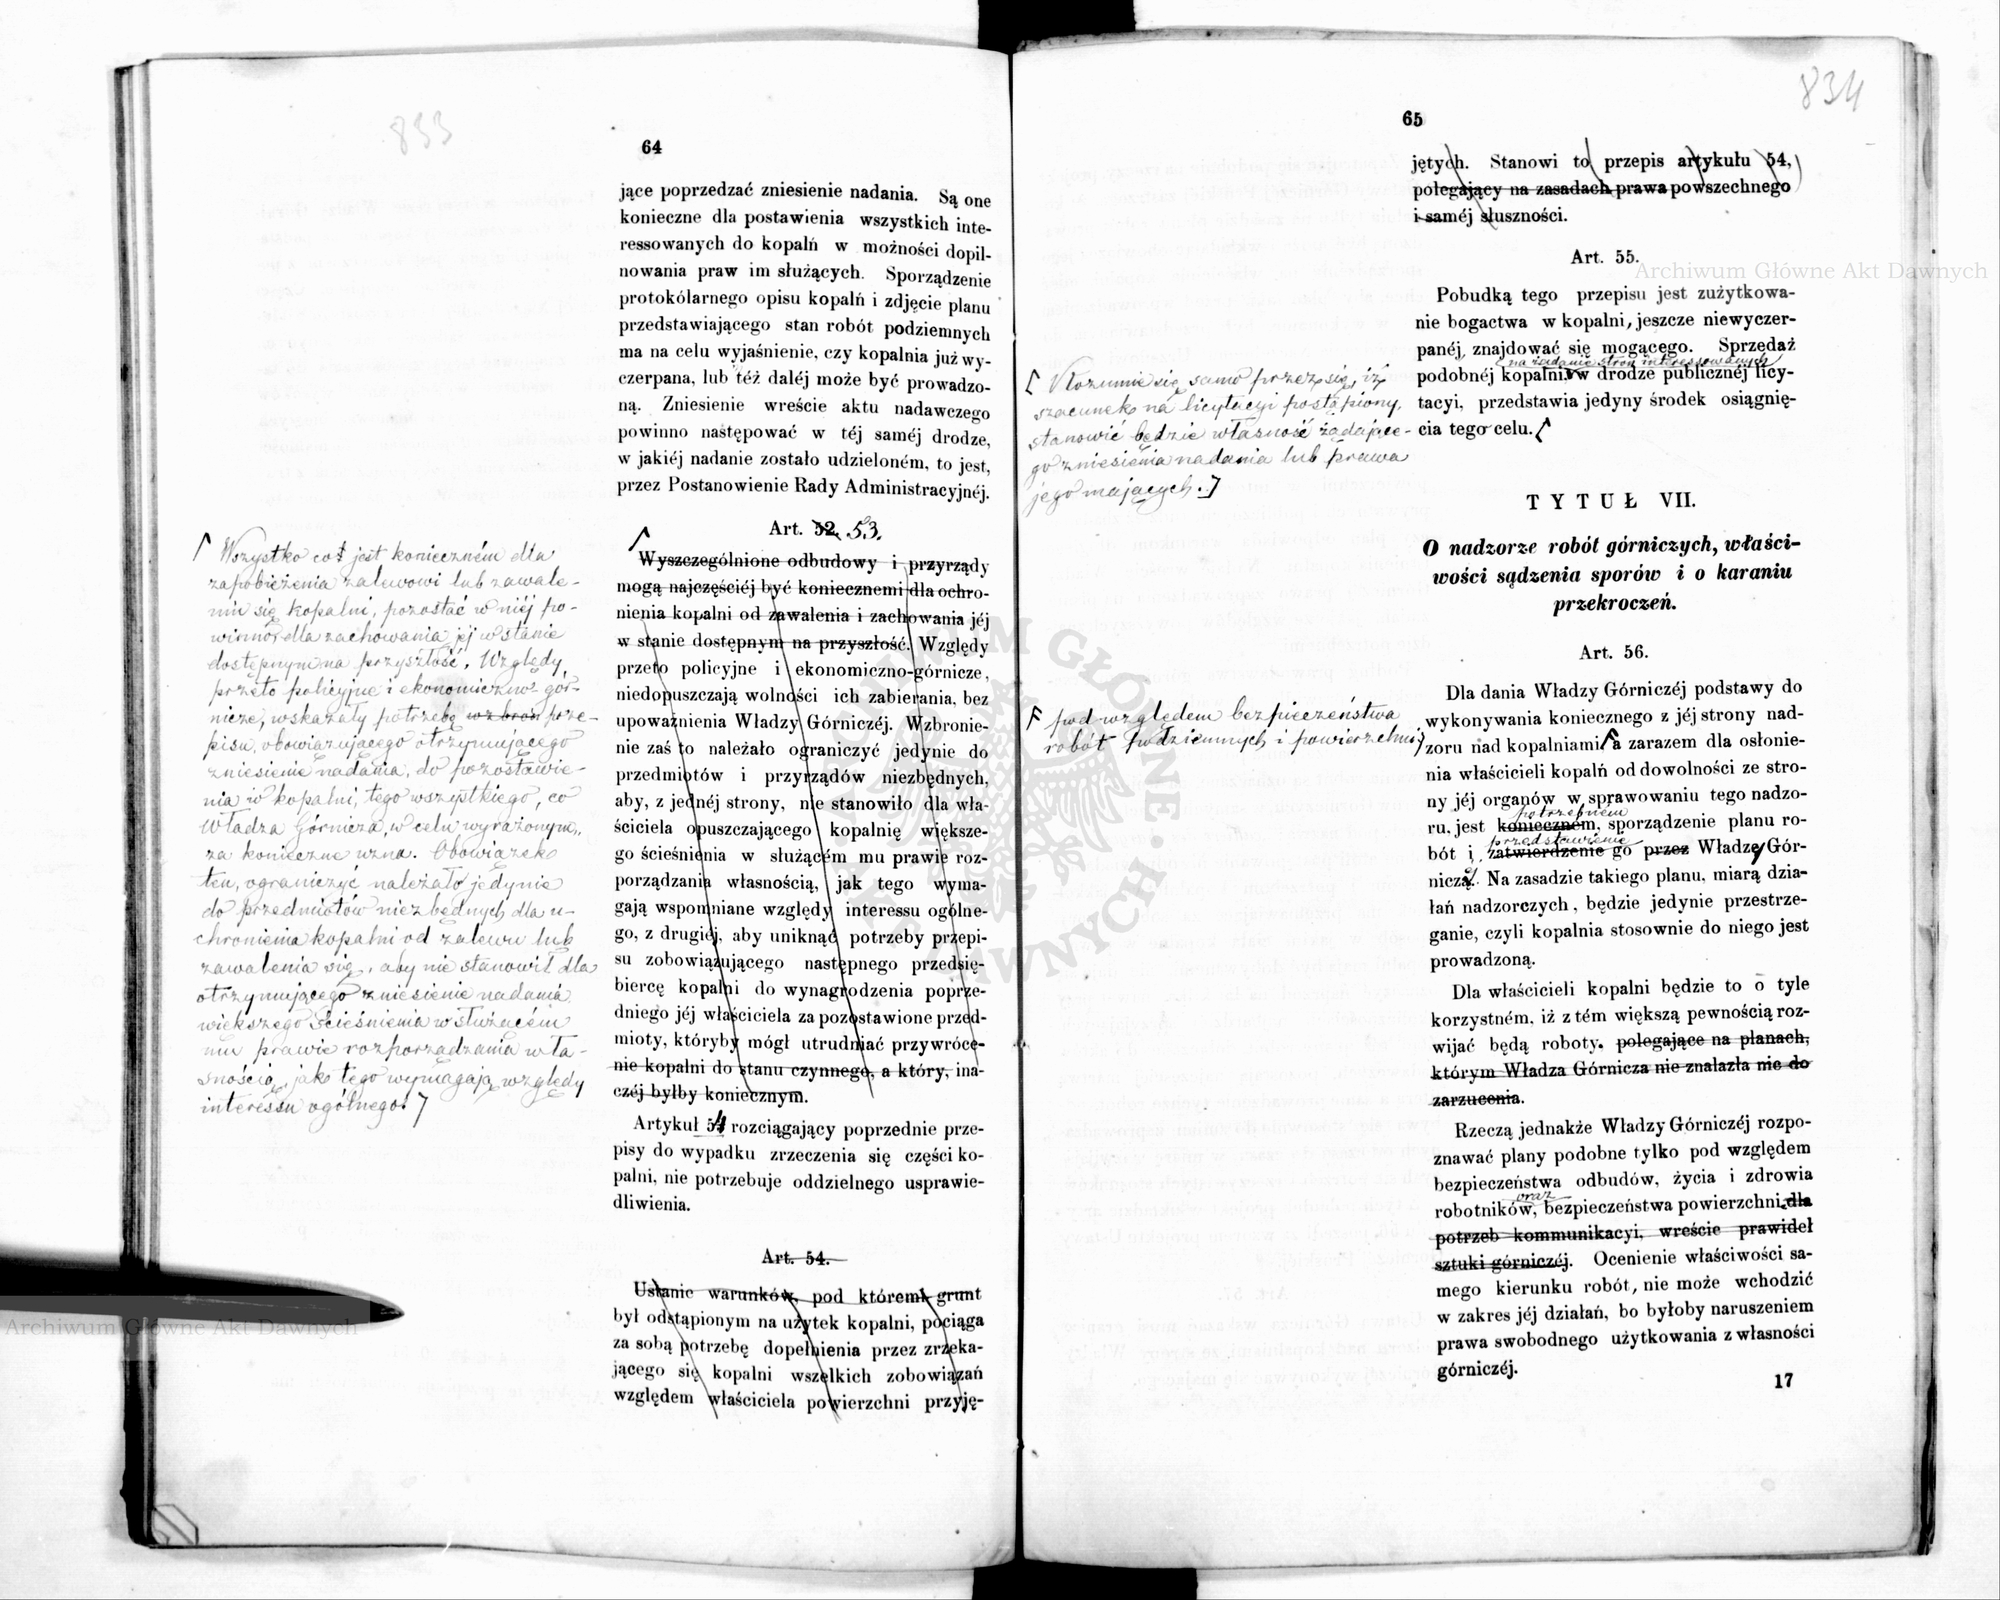 833
64
jące poprzedzać zniesienie nadania. Są one
konieczne dla postawienia wszystkich inte-
ressowanych do kopalń w możności dopil-
nowania praw im służących. Sporządzenie
protokólarnego opisu kopalń i zdjęcie planu
przedstawiającego stan robót podziemnych
ma na celu wyjaśnienie, czy kopalnia już wy-
czerpana, lub téż daléj może być prowadzo-
ną. Zniesienie wreście aktu nadawczego
powinno następować w téj saméj drodze,
w jakiéj nadanie zostało udzieloném, to jest,
przez Postanowienie Rady Administracyjnéj.
Art. 52. 53.
Wyszczególnione odbudowy i przyrządy
mogą najczęściéj być koniecznemi dla ochro-
nienia kopalni od zawalenia i zachowania jéj
w stanie dostępnym na przyszłość. Względy
przeto policyjne i ekonomiczno-górnicze,
niedopuszczają wolności ich zabierania, bez
upoważnienia Władzy Górniczéj. Wzbronie-
nie zaś to należało ograniczyć jedynie do
przedmiotów i przyrządów niezbędnych,
aby, z jednéj strony, nie stanowiło dla wła-
ściciela opuszczającego kopalnię większe-
go ścieśnienia w służącém mu prawie roz-
porządzania własnością, jak tego wyma-
gają wspomniane względy interessu ogólne-
go, z drugiéj, aby uniknąć potrzeby przepi-
su zobowiązującego następnego przedsię-
biercę kopalni do wynagrodzenia poprze-
dniego jéj właściciela za pozostawione przed-
mioty, któryby mógł utrudniać przywróce-
nie kopalni do stanu czynnego, a który, ina-
czéj byłby koniecznym.
Artykuł 54 rozciągający poprzednie prze-
pisy do wypadku zrzeczenia się części ko-
palni, nie potrzebuje oddzielnego usprawie-
dliwienia.
Art. 54.
Ustanie warunków, pod któremi grunt
był odstąpionym na użytek kopalni, pociąga
za sobą potrzebę dopełnienia przez zrzeka-
jącego się kopalni wszelkich zobowiązań
względem właściciela powierzchni przyję-
Wszystko co jest konieczném dla
zapobieżenia zalewowi lub zawale-
niu się kopalni, pozostać w niéj po-
winno, dla zachowania jéj w stanie
dostępnym na przyszłość. Względy
przeto policyjne i ekonomiczno-gór-
nicze, wskazały potrzebę wzbron prze-
pisu, obowiązującego otrzymującego
zniesienie nadania, do pozostawie-
nia w kopalni, tego wszystkiego, co
Władza Górnicza, w celu wyrażonym,
za konieczne uzna. Obowiązek
ten, ograniczyć należało jedynie
do przedmiotów niezbędnych dla u-
chronienia kopalni od zalewu lub
zawalenia się, aby nie stanowił dla
otrzymującego zniesienie nadania
większego ścieśnienia w służącém
mu prawie rozporządzania wła-
snością, jak tego wymagają względy
interessu ogólnego.
834
65
jętych. Stanowi to przepis artykułu 54,
polegający na zasadach prawa powszechnego
i saméj słuszności.
Art. 55.
Pobudką tego przepisu jest zużytkowa-
nie bogactwa w kopalni, jeszcze niewyczer-
panéj, znajdować się mogącego. Sprzedaż
na żądanie stron interessowanych
podobnéj kopalni w drodze publicznéj licy-
tacyi, przedstawia jedyny środek osiągnię-
cia tego celu.
Rozumie się samo przez się, iż
szacunek na licytacyi postąpiony,
stanowić będzie własność żądające-
go zniesienia nadania lub prawa
jego mających.
TYTUŁ VII.
O nadzorze robót górniczych, właści-
wości sądzenia sporów i o karaniu
przekroczeń.
Art. 56.
Dla dania Władzy Górniczéj podstawy do
wykonywania koniecznego z jéj strony nad-
zoru nad kopalniami a zarazem dla osłonie-
nia właścicieli kopalń od dowolności ze stro-
ny jéj organów w sprawowaniu tego nadzo-
potrzebném
ru, jest konieczném, sporządzenie planu ro-
przedstawienie
bót i zatwierdzenie go przez Władzę Gór-
niczą. Na zasadzie takiego planu, miarą dzia-
łań nadzorczych, będzie jedynie przestrze-
ganie, czyli kopalnia stosownie do niego jest
prowadzoną.
Dla właścicieli kopalni będzie to o tyle
korzystném, iż z tém większą pewnością roz-
wijać będą roboty, polegające na planach,
którym Władza Górnicza nie znalazła nic do
zarzucenia.
Rzeczą jednakże Władzy Górniczéj rozpo-
znawać plany podobne tylko pod względem
bezpieczeństwa odbudów, życia i zdrowia
oraz
robotników, bezpieczeństwa powierzchni, dla
potrzeb kommunikacyi, wreście prawideł
sztuki górniczéj. Ocenienie właściwości sa-
mego kierunku robót, nie może wchodzić
w zakres jéj działań, bo byłoby naruszeniem
prawa swobodnego użytkowania z własności
górniczéj.
17
pod względem bezpieczeństwa
robót podziemnych i powierzchni,
Archiwum Główne Akt Dawnych
Archiwum Główne Akt Dawnych
ARCHIWUM GŁÓWNE AKT DAWNYCH